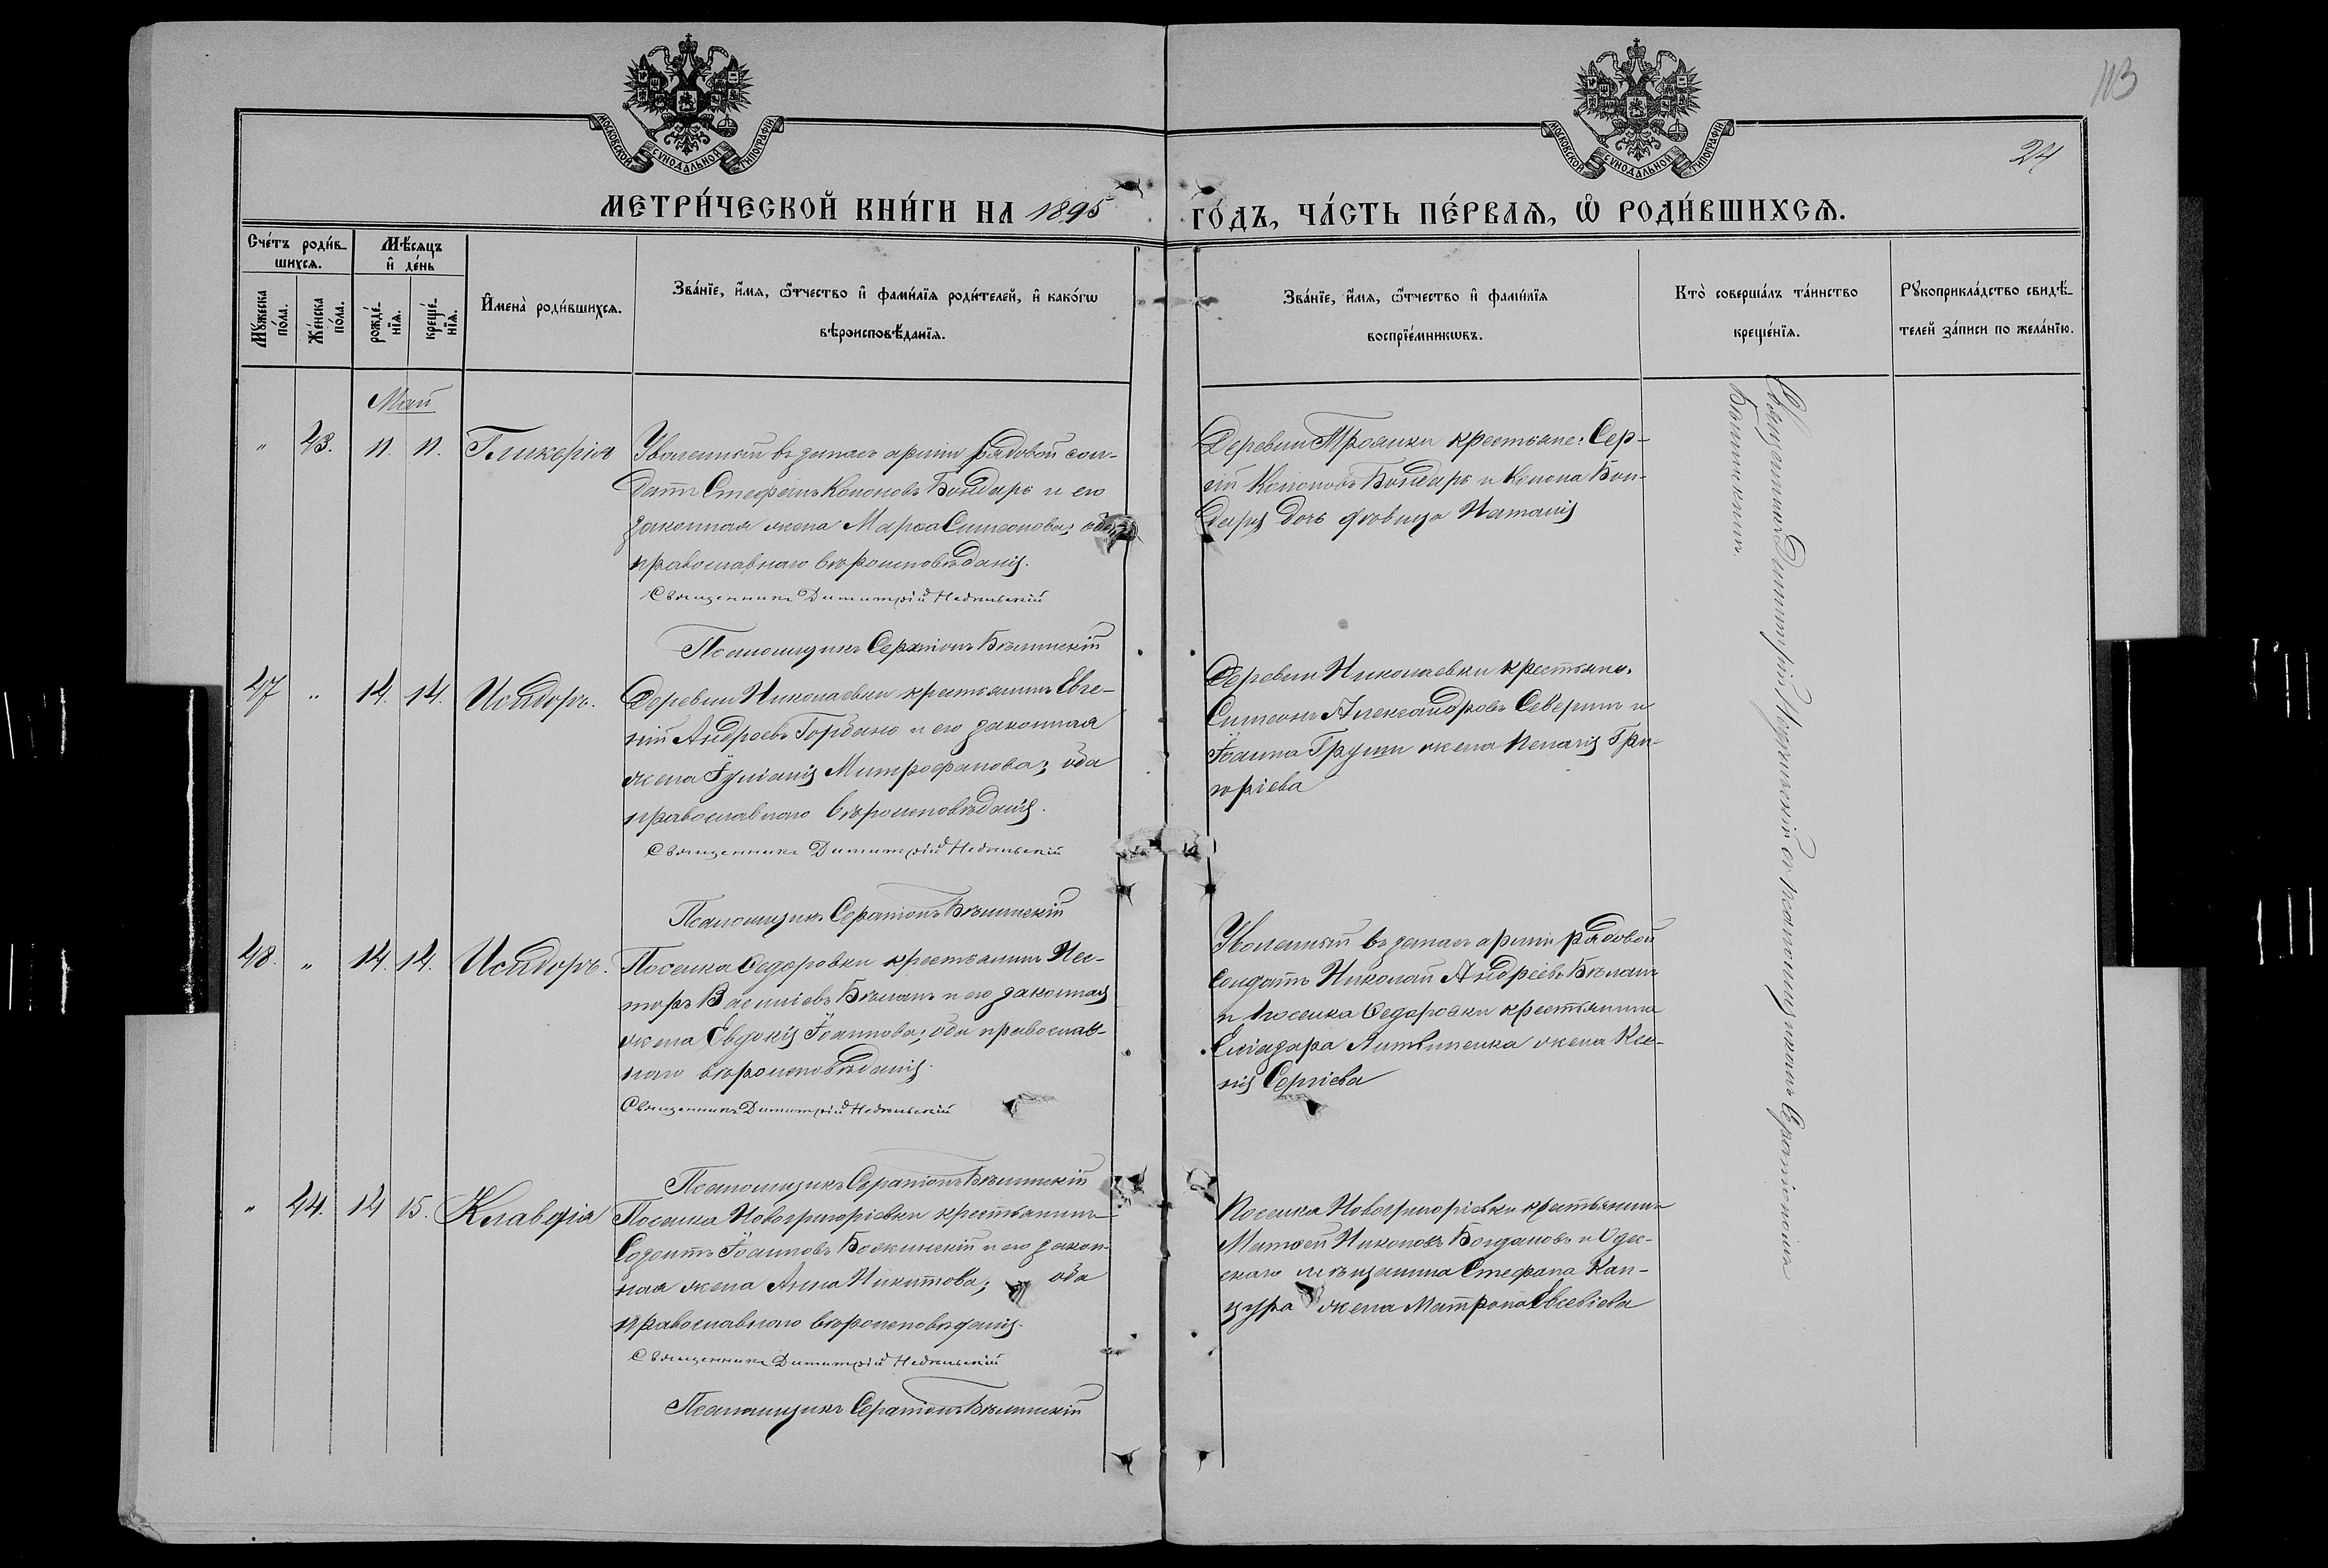 113
24
МОСКОВСКОЙ СѴНОДАЛЬНОЙ ТИПОГРАФІИ
МОСКОВСКОЙ СѴНОДАЛЬНОЙ ТИПОГРАФІИ
МЕТРИ́ЧЕСКОЙ КНИ́ГИ НА 1895 ГО́ДЪ, ЧА́СТЬ ПЕ́РВАЯ, Ѡ РОДИ́ВШИХСЯ.
Сче́тъ роди́в-
шихся.
Му́жеска по́ла.
Же́нска по́ла.
Мѣ́сяцъ
и де́нь
рожде́-
нїя.
креще́-
нїя.
Имена̀ роди́вшихся.
Зва́нїе, и́мя, ѻ́тчество и фами́лїя роди́телей, и како́гѡ
вѣроисповѣ́данїя.
Зва́нїе, и́мя, ѻ́тчество и фами́лїя
воспрїе́мникѡвъ.
Кто̀ соверша́лъ та́инство
креще́нїя.
Рꙋкоприкла́дство свидѣ́-
телей за́писи по жела́нїю.
Май
" 43. 11. 11. Гликерія
Уволенный въ запасъ арміи рядовой сол-
датъ Стефанъ Кононовъ Бондарь и его
законная жена Марѳа Симеонова; оба
православнаго вѣроисповѣданія.
Священникъ Димитрій
Псаломщикъ Серапіонъ Бѣлинскій
Деревни Троянки крестьяне: Сер-
гій Кононовъ Бондарь и Конона Бон-
даря дочь дѣвица Наталія
47 " 14. 14. Исидоръ.
Деревни Николаевки крестьянинъ Евге-
ній Андреевъ Горбань и его законная
жена Іуліанія Митрофанова; оба
православнаго вѣроисповѣданія.
Священникъ Димитрій
Псаломщикъ Серапіонъ Бѣлинскій
Деревни Николаевки крестьяне:
Симеонъ Александровъ Северинъ и
Іоанна Груши жена Пелагія Гри-
горіева
48. " 14. 14. Исидоръ.
Поселка Ѳедоровки крестьянинъ Нес-
торъ Василіевъ Бѣланъ и его законная
жена Евдокія Іоаннова; оба православ-
наго вѣроисповѣданія.
Священникъ Димитрій
Псаломщикъ Серапіонъ Бѣлинскій
Уволенный въ запасъ арміи рядовой
солдатъ Николай Андреевъ Бѣланъ
и поселка Ѳедоровки крестьянина
Еліазара Литвиненка жена Ксе-
нія Сергіева
" 44. 14 15. Клавдія
Поселка Новогригоріевки крестьянинъ
Іоанновъ и его закон-
ная жена Анна Никитова; оба
православнаго вѣроисповѣданія.
Священникъ Димитрій
Псаломщикъ Серапіонъ Бѣлинскій
Поселка Новогригоріевки крестьянинъ
Матѳей Никоновъ Богдановъ и Одес-
скаго мѣщанина Стефана Кан-
цура жена Матрона Евсевіева
Священникъ Димитрій съ псаломщикомъ Серапіономъ
Бѣлинскимъ.